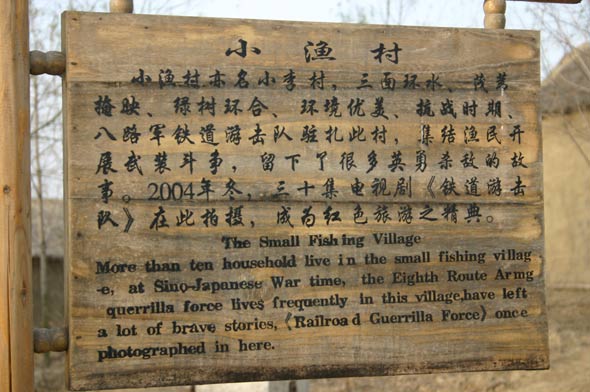 小渔村
小渔村亦名小李村，三面环水、茂苇
掩映、绿树环合、环境优美、抗战时期、
八路军铁道游击队驻扎此村，集结渔民开
展武装斗争，留下了很多英勇杀敌的故
事。2004年冬，三十集电视剧《铁道游击
队》在此拍摄，成为红色旅游之精典。
The Small Fishing Village
More than ten household live in the small fishing villag
-e, at Sino-Japanese War time, the Eighth Route Armg
guerrilla force lives frequently in this village,have left
a lot of brave stories,《Railroad Guerrilla Force》once
photographed in here.